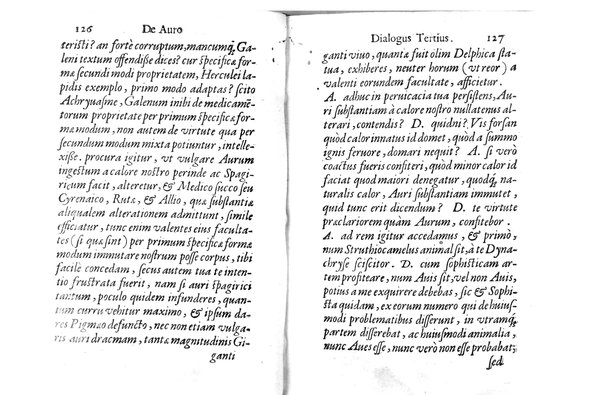 126 De Auro
teristi? an fortè corruptum, mancumq́; Ga-
leni textum offendisse dices? cur specificæ for-
mæ secundi modi proprietatem, Herculei la-
pidis exemplo, primo modo adaptas? scito
Achryuasme, Galenum inibi de medicamē-
torum proprietate per primum specificæ for-
mæ modum, non autem de virtute qua per
secundum modum mixta potiuntur, intelle-
xisse. procura igitur, vt vulgare Aurum
ingestum a calore nostro perinde ac Spagi-
ricum facit, alteretur, & Medico succo seu
Cyrenaico, Rutæ, & Allio, quæ substantiæ
aliqualem alterationem admittunt, simile
efficiatur, tunc enim valentes eius faculta-
tes (si quæ sint) per primum specificæ formæ
modum immutare nostrum posse corpus, tibi
facilè concedam, secus autem tua te inten-
tio frustrata fuerit, nam si auri spagirici
tantum, poculo quidem infunderes, quan-
tum curru vehitur maximo, & ipsum da-
res Pigmæo defuncto, nec non etiam vulga-
ris auri dracmam, tantæ magnitudinis Gi-
ganti
Dialogus Tertius. 127
ganti viuo, quantæ fuit olim Delphica sta-
tua, exhiberes, neuter horum (vt reor) a
valenti eorundem facultate, afficietur.
A. adhuc in peruicacia tua persistens, Au-
ri substantiam à calore nostro nullatenus al-
terari, contendis? D. quidni? Vis forsan
quòd calor innatus id domet, quòd a summo
ignis feruore, domari nequit? A. si verò
coactus fueris confiteri, quòd minor calor id
faciat quòd maiori denegatur, quodq́; na-
turalis calor, Auri substantiam immutet,
quid tunc erit dicendum? D. te virtute
præclariorem quàm Aurum, confitebor.
A. ad rem igitur accedamus, & primò,
num Struthiocamelus animal sit, à te Dyna-
chryse sciscitor. D. cum sophisticam ar-
tem profiteare, num Auis sit, vel non Auis,
potus a me exquirere debebas, sic & Sophi-
sta quidam, ex eorum numero qui de huius-
modi problematibus disserunt, in vtramq́;
partem disserebat, ac huiusmodi animalia,
nunc Aues esse, nunc verò non esse probabat;
sed